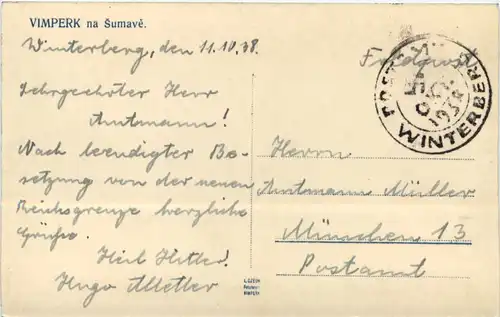 VIMPERK na Šumavě.
Winterberg, den 11.10.38.
Feldpost
POSTAMT
OKT. 1938
WINTERBERG
Sehrgeehrter Herr
Amtmann!
Nach beendigter Be-
setzung von der neuen
Reichsgrenze herzliche
Grüße.
Heil Hitler!
Hugo
Herrn
Amtmann Müller
München 13
Postamt